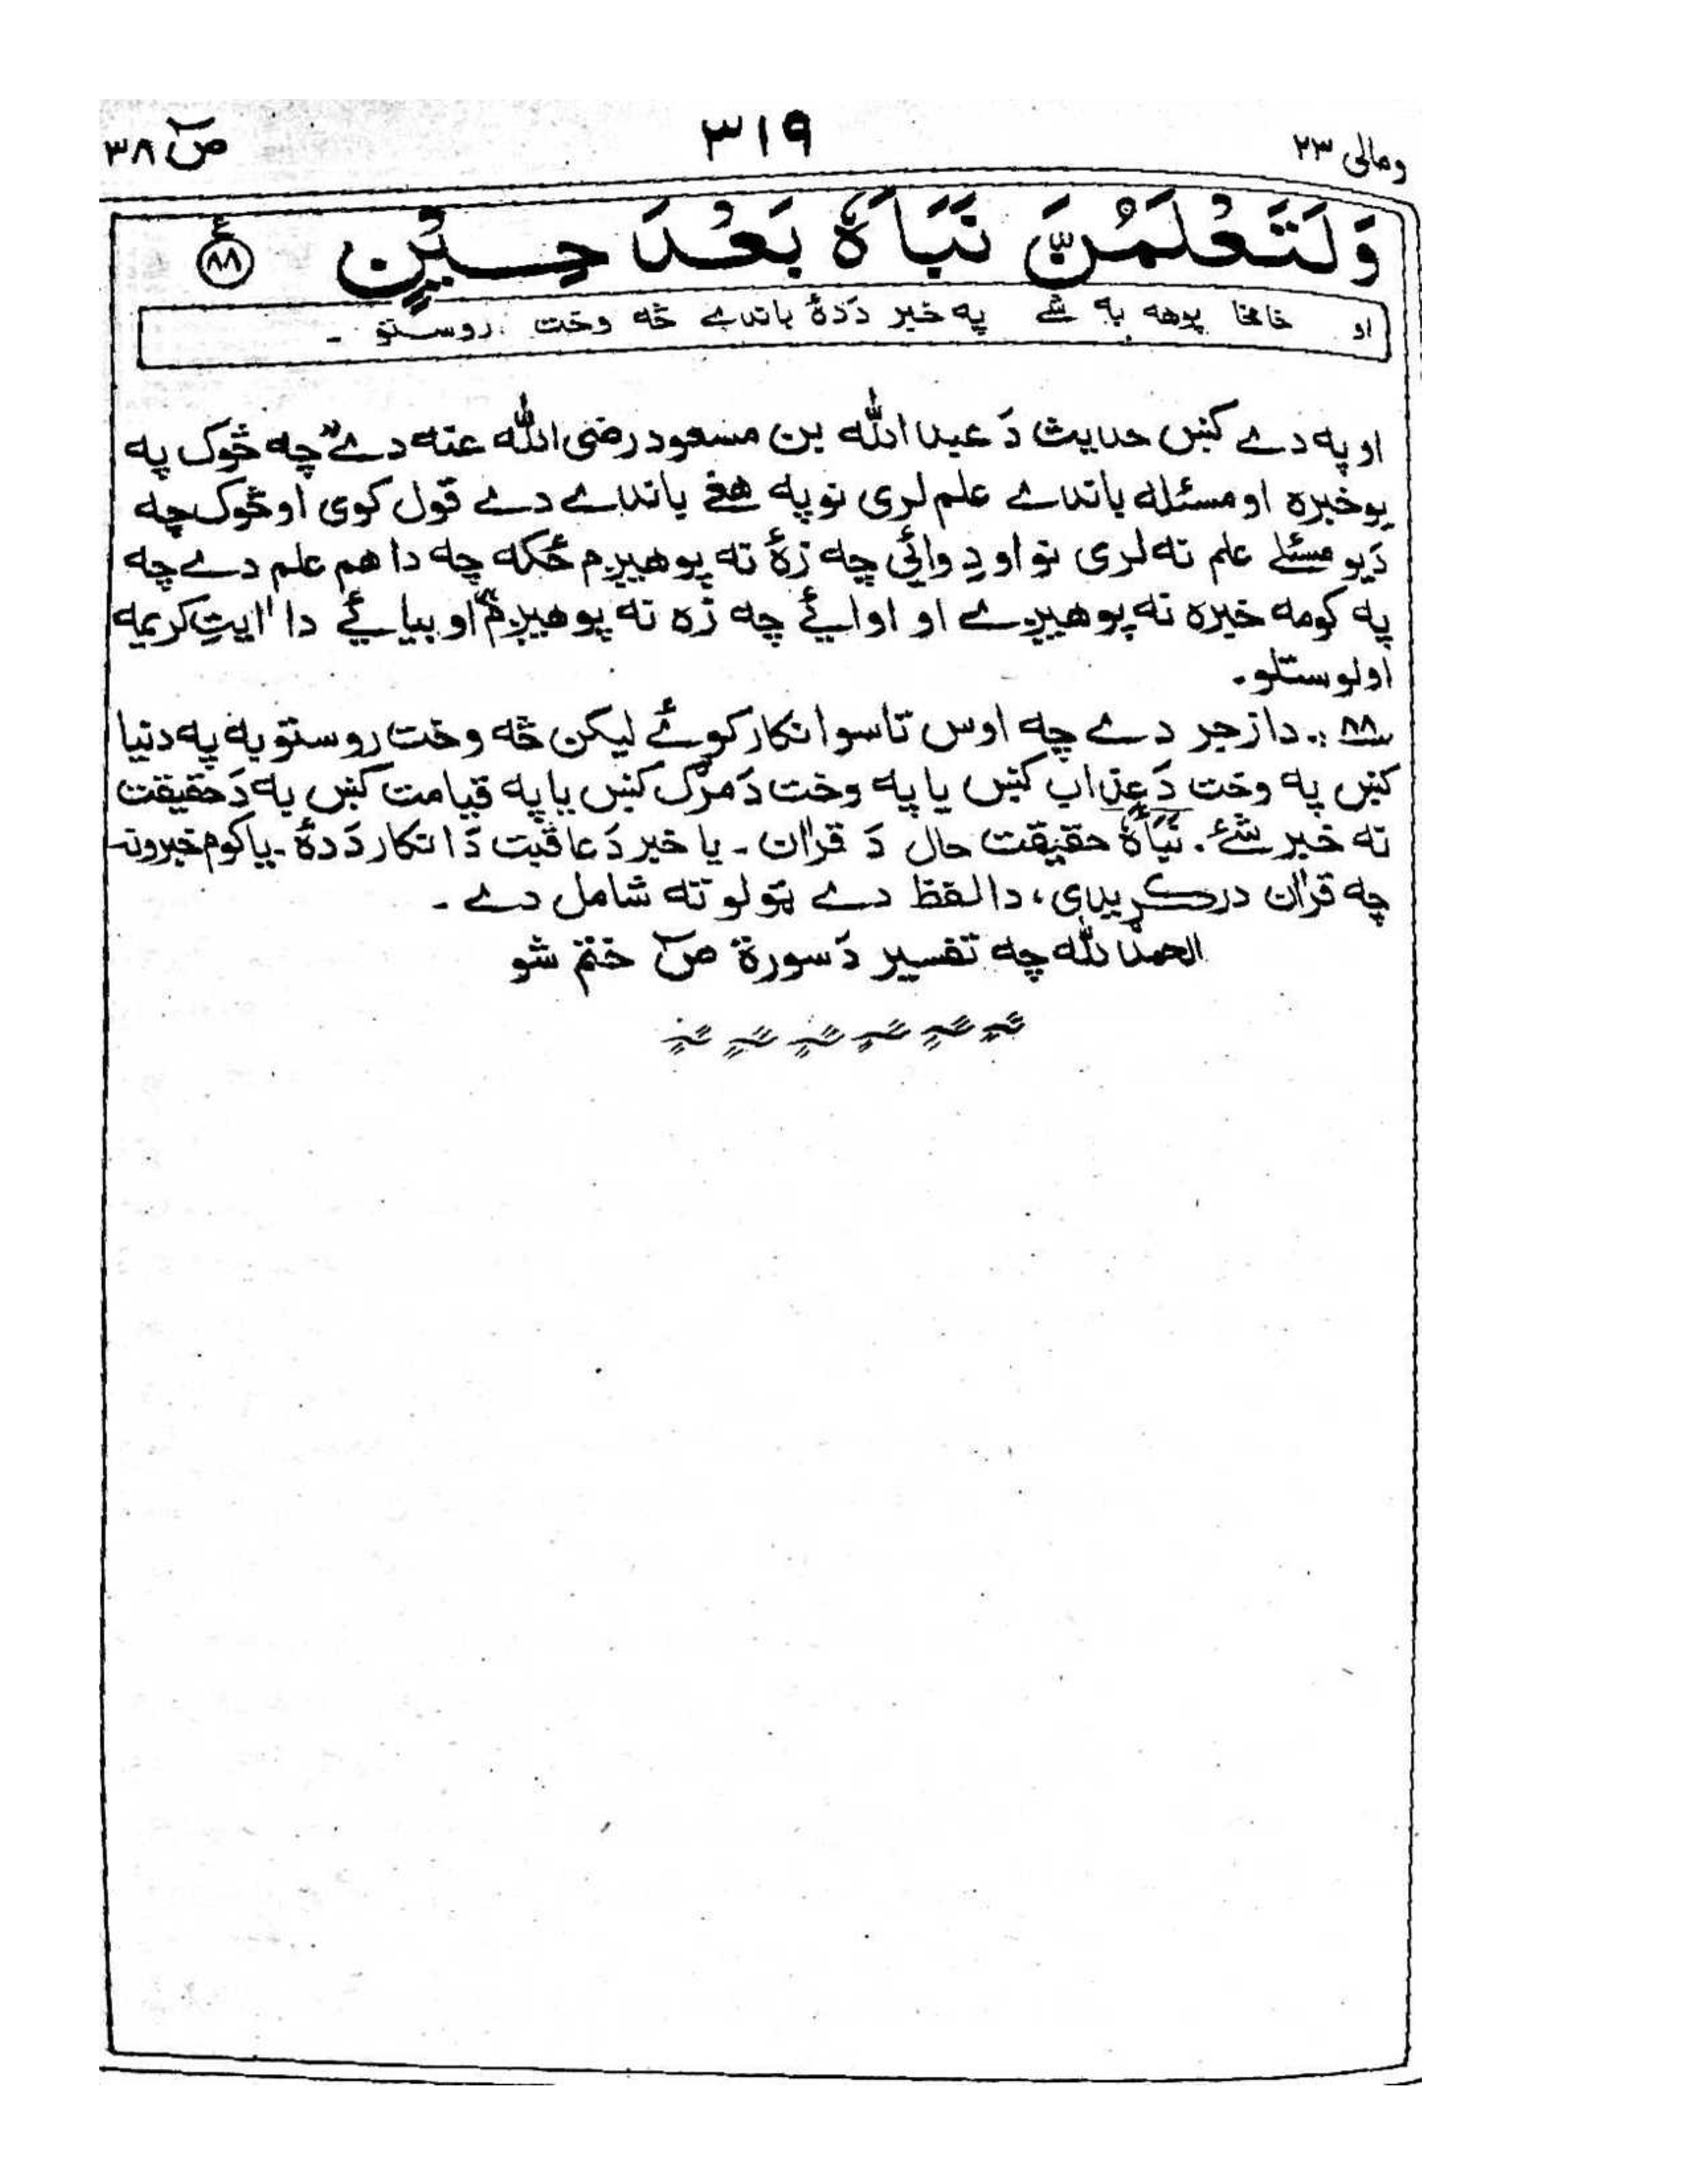 ومالی ۲۳
۳۱۹
صٓ ۳۸
وَلَتَعْلَمُنَّ نَبَاَهٗ بَعْدَ حِيْنٍ ﴿۸۸﴾ ع
او خامخا پوهه به شے په خبر دَدۀ باندے څه وخت روستو ۔
او په دے کښ حدیث دَ عبدالله بن مسعود رضی الله عنه دے ”چه څوک په
یو خبره او مسئله باندے علم لری نو په هغے باندے دے قول کوی او څوک چه
دَیو مسئلے علم نه لری نو او دِ وائي چه زۀ نه پوهیږم ځکه چه دا هم علم دے چه
په کومه خبره نه پوهیږے او اوایئے چه زه نه پوهیږم“ او بیا ئے دا ایتِ کریمه
اولوستلو.
۸۸ :. دا زجر دے چه اوس تاسو انکار کوئے لیکن څه وخت روستو په په دنیا
کښ په وخت دَ عذاب کښ یا په وخت دَ مرګ کښ یا په قیامت کښ به دَ حقیقت
نه خبر شئے. نَبَاَهٗ حقیقت حال دَ قرآن ۔ یا خبر دَ عاقبت دَ انکار دَ دۀ ۔ یا کوم خبرونه
چه قرآن درکړیدی، دا لفظ دے ټولو ته شامل دے ۔
الحمد لله چه تفسیر دَ سورة صٓ ختم شو